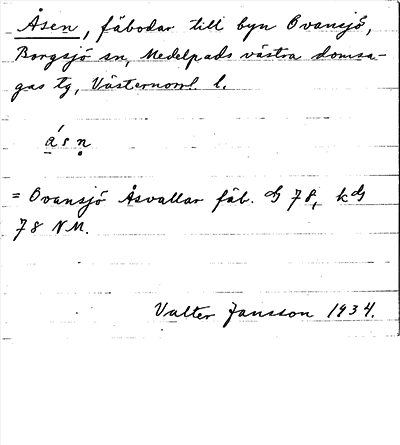 Åsen, fäbodar till byn Ovansjö,
Borgsjö sn, Medelpads västra domsa-
gas tg, Västernorrl. l.
ásn̥
= Ovansjö Åsvallar fäb. dj 78, kdj
78 NM.
Valter Jansson 1934.